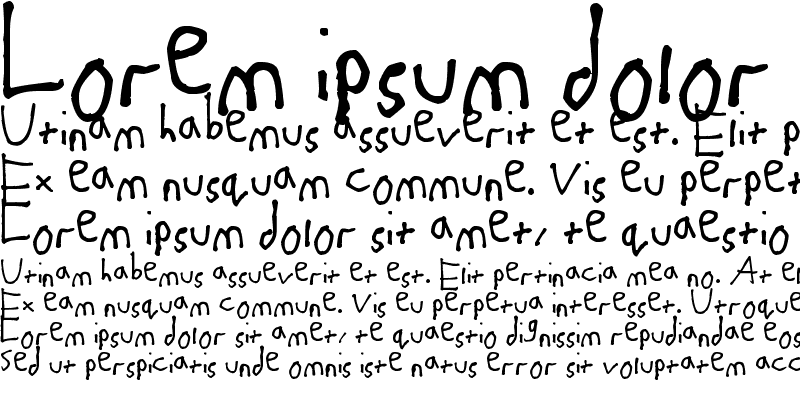 Lorem ipsum dolor
Utinam habemus assueverit et est. Elit p
Ex eam nusquam commune. Vis eu perpet
Lorem ipsum dolor sit amet, te quaestio
Utinam habemus assueverit et est. Elit pertinacia mea no. At e
Ex eam nusquam commune. Vis eu perpetua interesset. Utroque
Lorem ipsum dolor sit amet, te quaestio dignissim repudiandae eos
sed ut perspiciatis unde omnis iste natus error sit voluptatem acc